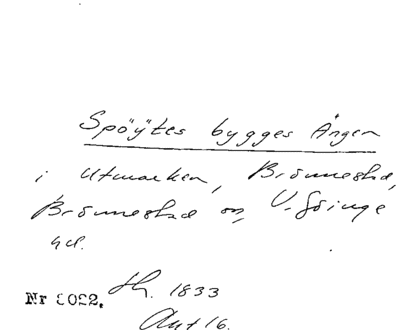 Spöÿtes bygges Ången
i Utmarken, Brönnestad,
Brönnestad sn, V. Göinge
hd.
Nr 8022. Th. 1833
Aut 16.